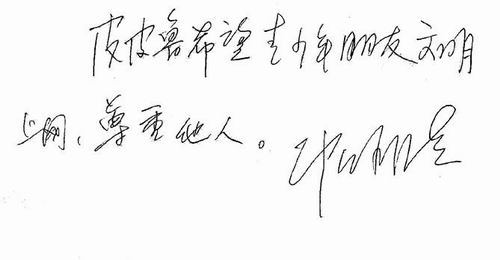 皮皮鲁希望青少年朋友文明
上网、尊重他人。